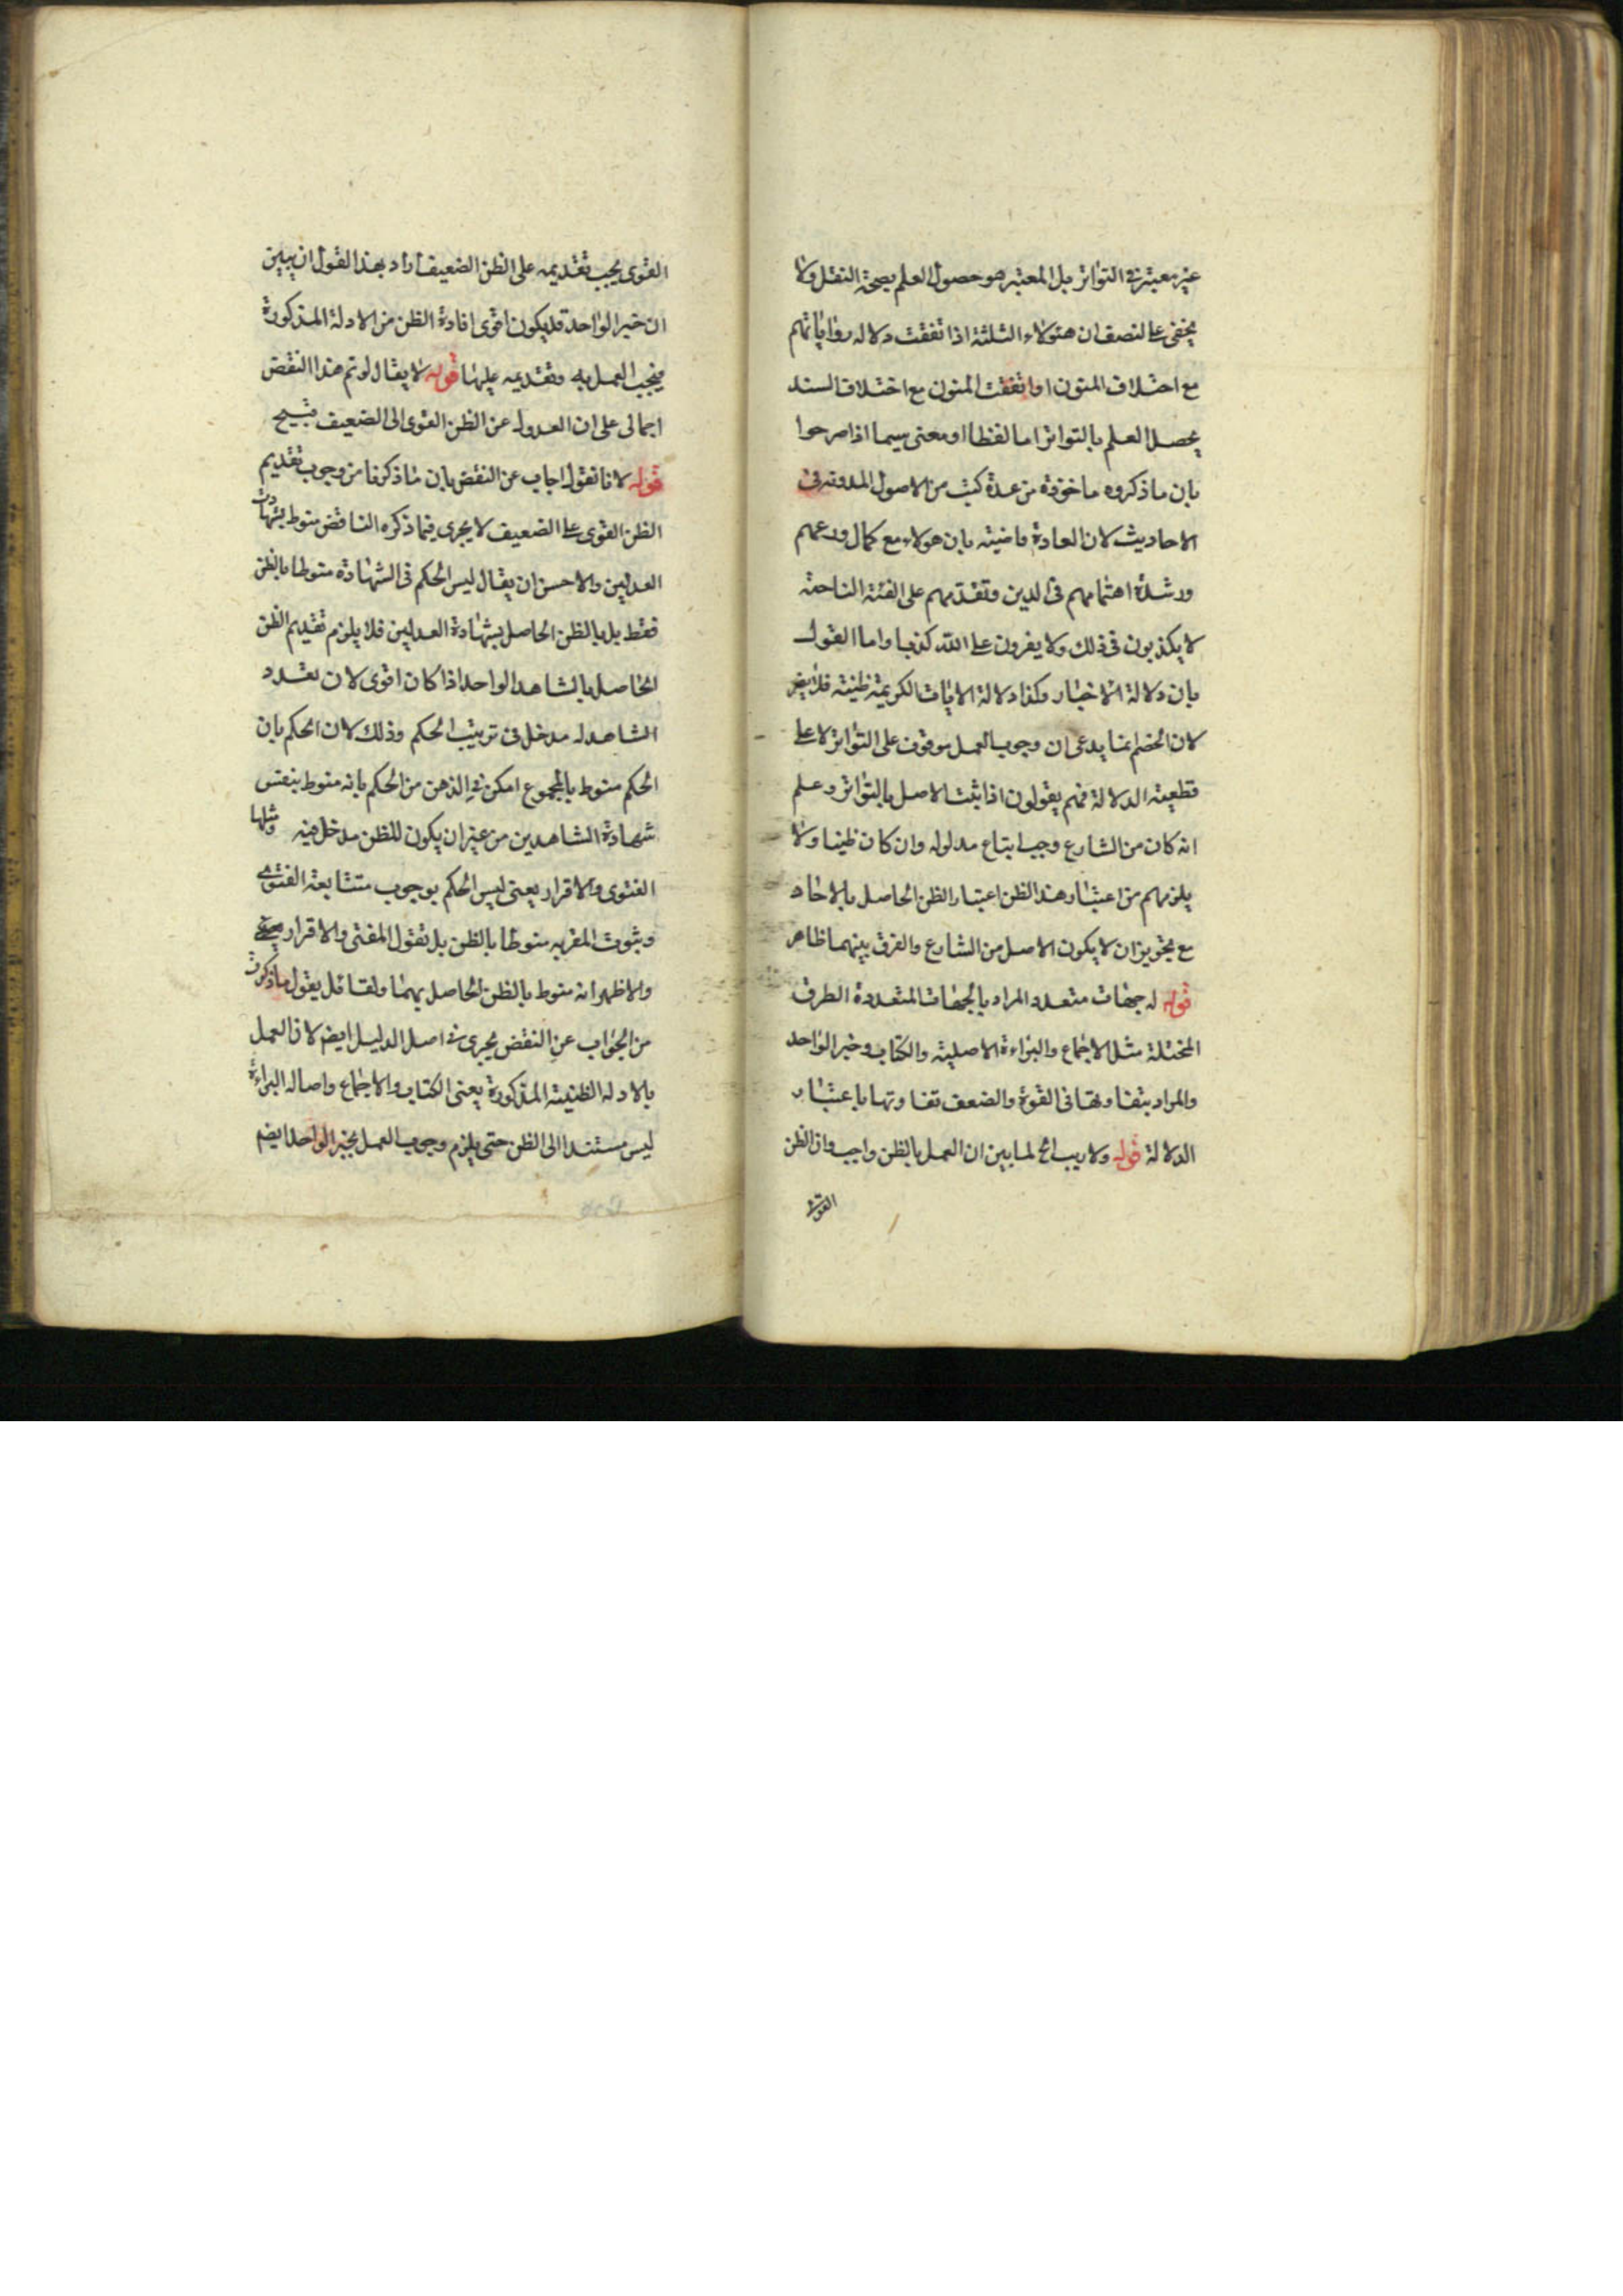 غير معتبر في التواتر بل المعتبر هو حصول العلم بصحة النقل ولا
يخفى على المنصف ان هؤلاء الثلثة اذا تفقت دلاله رواياتهم
مع اختلاف المتون او اتفقت المتون مع اختلاف السند
يحصل العلم بالتواتر اما لفظا او معنى سيما اذا صرحوا
بان ما ذكروه ماخوذة من عدة كتب من الاصول المدونه في
الاحاديث لان العادة قاضيته بان هولاء مع كمال ورعهم
وشدة اهتمامهم في الدين وتقدمهم على الفئة الناجية
لا يكذبون في ذلك ولا يفرون على الله كذبا واما القول
بان دلالة الاخبار وكذا دلالة الايات الكريمة ظنية فلا يضر
لان الخصم انما يدعى ان وجوب العمل موقوف على التواتر لا على
قطعية الدلالة فهم يقولون اذا ثبت الاصل بالتواتر وعلم
انه كان من الشارع وجب ابتاع مدلوله وان كان ظنيا ولا
يلزمهم من اعتبار هذا الظن اعتبار الظن الحاصل بالاحاد
مع تجويز ان لا يكون الاصل من الشارع والفرق بينهما ظاهر
قوله له جهات متعدد المراد بالجهات المتعددة الطرق
المختلة مثل الاجماع والبراءة الاصلية والكتاب وخبر الواحد
والمراد بتفاوتها في القوة والضعف تفاوتها باعتبار
الدلالة قوله ولا ريب الخ لما بين ان العمل بالظن واجب وان الظن
القوى
القوى يجب تقديمه على الظن الضعيف اراد بهذا القول ان يبين
ان خبر الواحد قد يكون اقوى افادة الظن من الادلة المذكورة
فيجب العمل به وتقديمه عليها قوله لا يقال لو تم هذا النقض
اجمالى على ان العدول عن الظن القوى الى الضعيف قبيح
قوله لانا نقول اجاب عن النقض بان ما ذكرنا من وجوب تقديم
الظن القوى على الضعيف لا يجرى فيما ذكره الناقض منوط بشهادت
العدلين والاحسن ان يقال ليس الحكم في الشهادة منوطا بالظن
فقط بل بالظن الحاصل بشهادة العدلين فلا يلزم تقديم الظن
الحاصل بالشاهد الواحد اذا كان اقوى لان تعدد
الشاهد له مدخل في ترتيب الحكم وذلك لان الحكم بان
الحكم منوط بالمجموع امكن في الذهن من الحكم بانه منوط بنفس
شهادة الشاهدين من غير ان يكون للظن مدخل فيه ومثلها
الفتوى والاقرار يعنى ليس الحكم بوجوب متشابعة الفتوى
وثبوت المقربه منوطا بالظن بل بقول المفتى والاقرار
والاظهر انه منوط بالظن الحاصل بهما ولقائل يقول ما ذكرت
من الجواب عن النقض يجرى في اصل الدليل ايضم لان العمل
بالادله الظنية المذكورة يعنى الكتاب والاجماع واصاله البراءة
ليس مستندا الى الظن حتى يلزم وجوب العمل بخبر الواحد ايضم